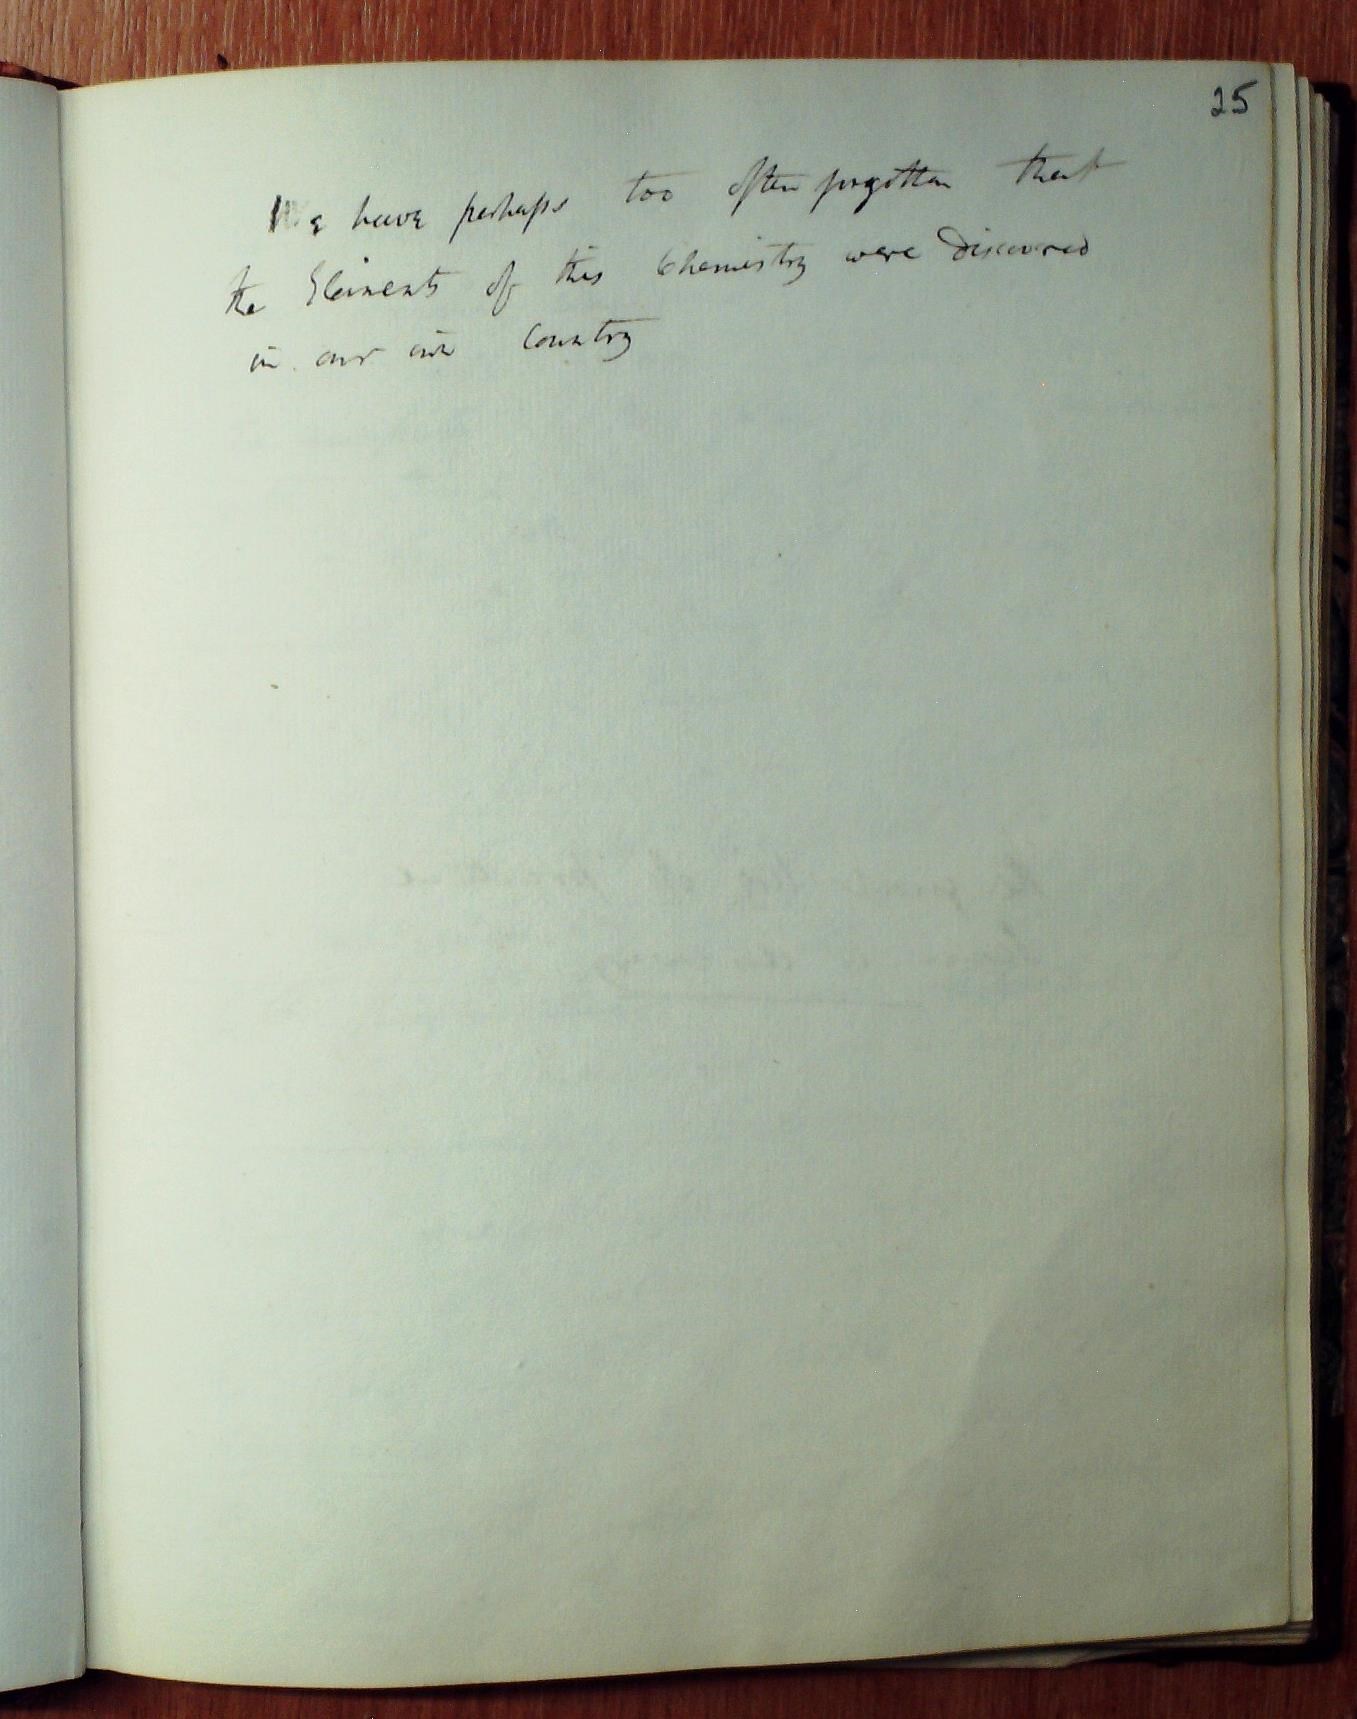 25
We have perhaps too often forgotten that
the Elements of this Chemistry were Discovered
in our own Country